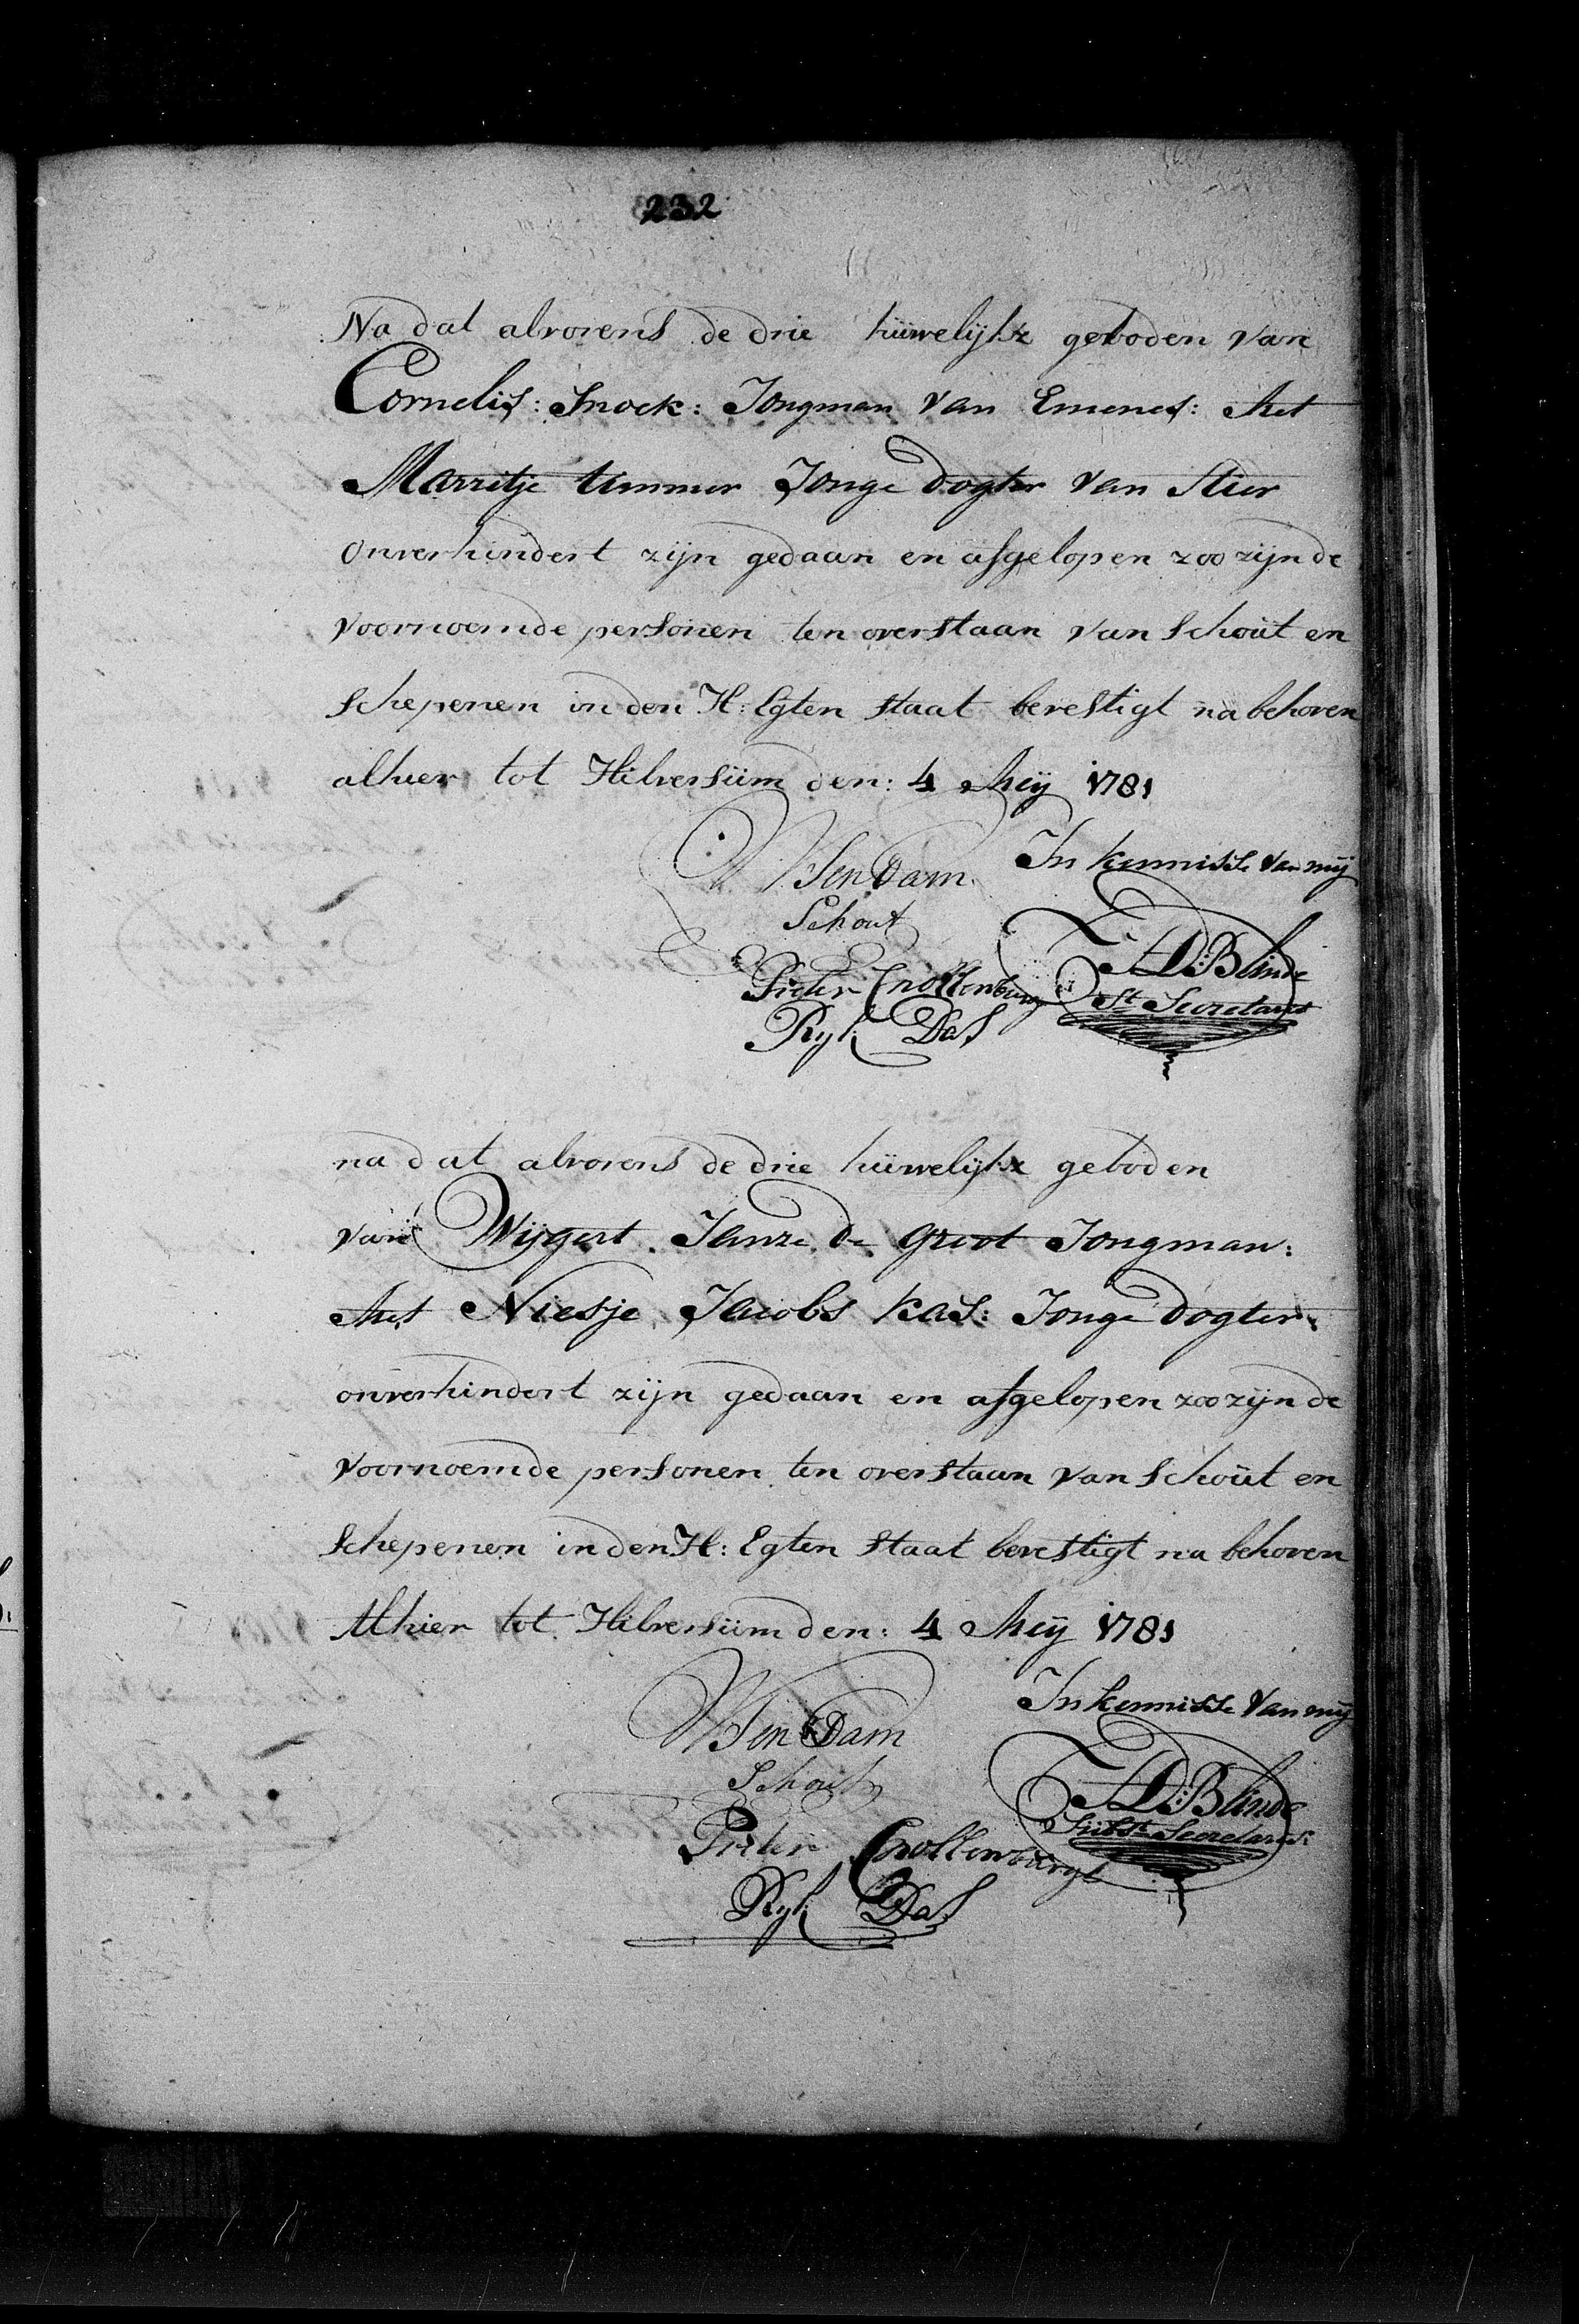 232
Na dat alvorens de drie hüwelijkze geboden van
Cornelis: Snoek: Jongman van Emenes: Met
Marritje timmer Jonge dogter van Hier
onverhindert zijn gedaan en afgelopen zoo zijn de
voornoemde personen ten overstaan van Schoüt en
Schepenen in den H: Egten staat bevestigt na behoren
alhier tot Hilversüm den: 4 Meij 1781
In kennisse van mij
Dam
Schout
D: Blinde
St Secretaris
Pieter Cnollenburg
Ryk Das
na dat alvorens de drie hüwelijkze geboden
van Wijgert Janze de Groot Jongman:
Met Niesje Jacobs Kas: Jonge dogter
onverhindert zijn gedaan en afgelopen zoo zijn de
voornoemde personen ten overstaan van Schoüt en
Schepenen in den H: Egten staat bevestigt na behoren
Alhier tot Hilversüm den: 4 Meij 1781
In kennisse van mij
Dam
Schout
D: Blinde
Subst Secretaris
Pieter Cnollenburg
Ryk Das